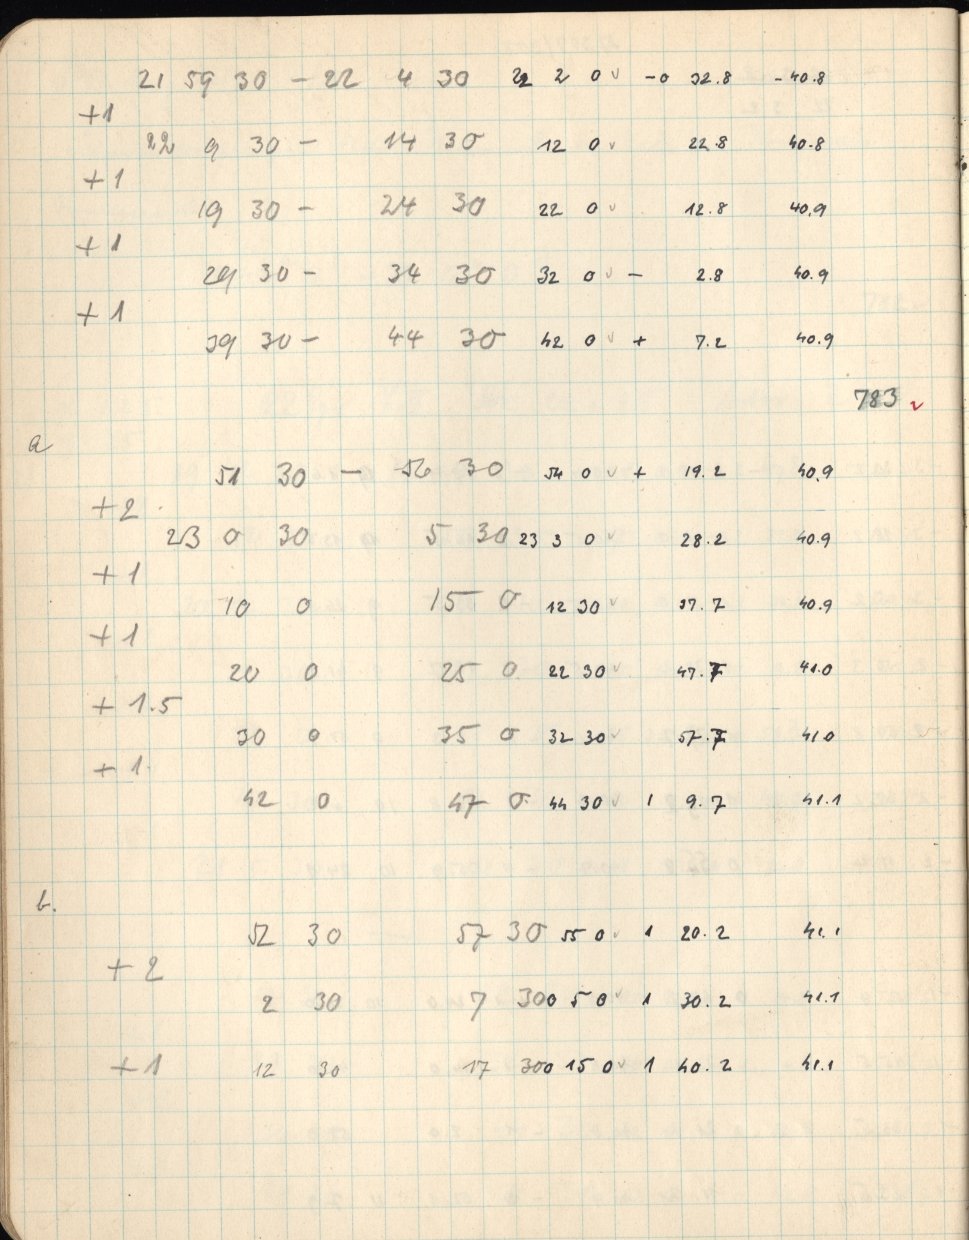 21 59 30 - 22 4 30 22 2 0 v -0 32.8 -40.8
+1
22 9 30 - 14 30 12 0 v 22.8 40.8
+1
19 30 - 24 30 22 0 v 12.8 40.9
+1
29 30 - 34 30 32 0 v - 2.8 40.9
+1
39 30 - 44 30 42 0 v + 7.2 40.9
783
a
51 30 - 56 30 54 0 v + 19.2 40.9
+2
23 0 30 5 30 23 3 0 v 28.2 40.9
+1
10 0 15 0 12 30 v 37.7 40.9
+1
20 0 25 0 22 30 v 47.7 41.0
+1.5
30 0 35 0 32 30 v 57.7 41.0
+1
42 0 47 0 44 30 v 1 9.7 41.1
b.
52 30 57 30 55 0 v 1 20.2 41.1
+2
2 30 7 30 0 5 0 v 1 30.2 41.1
+1 12 30 17 30 0 15 0 v 1 40.2 41.1